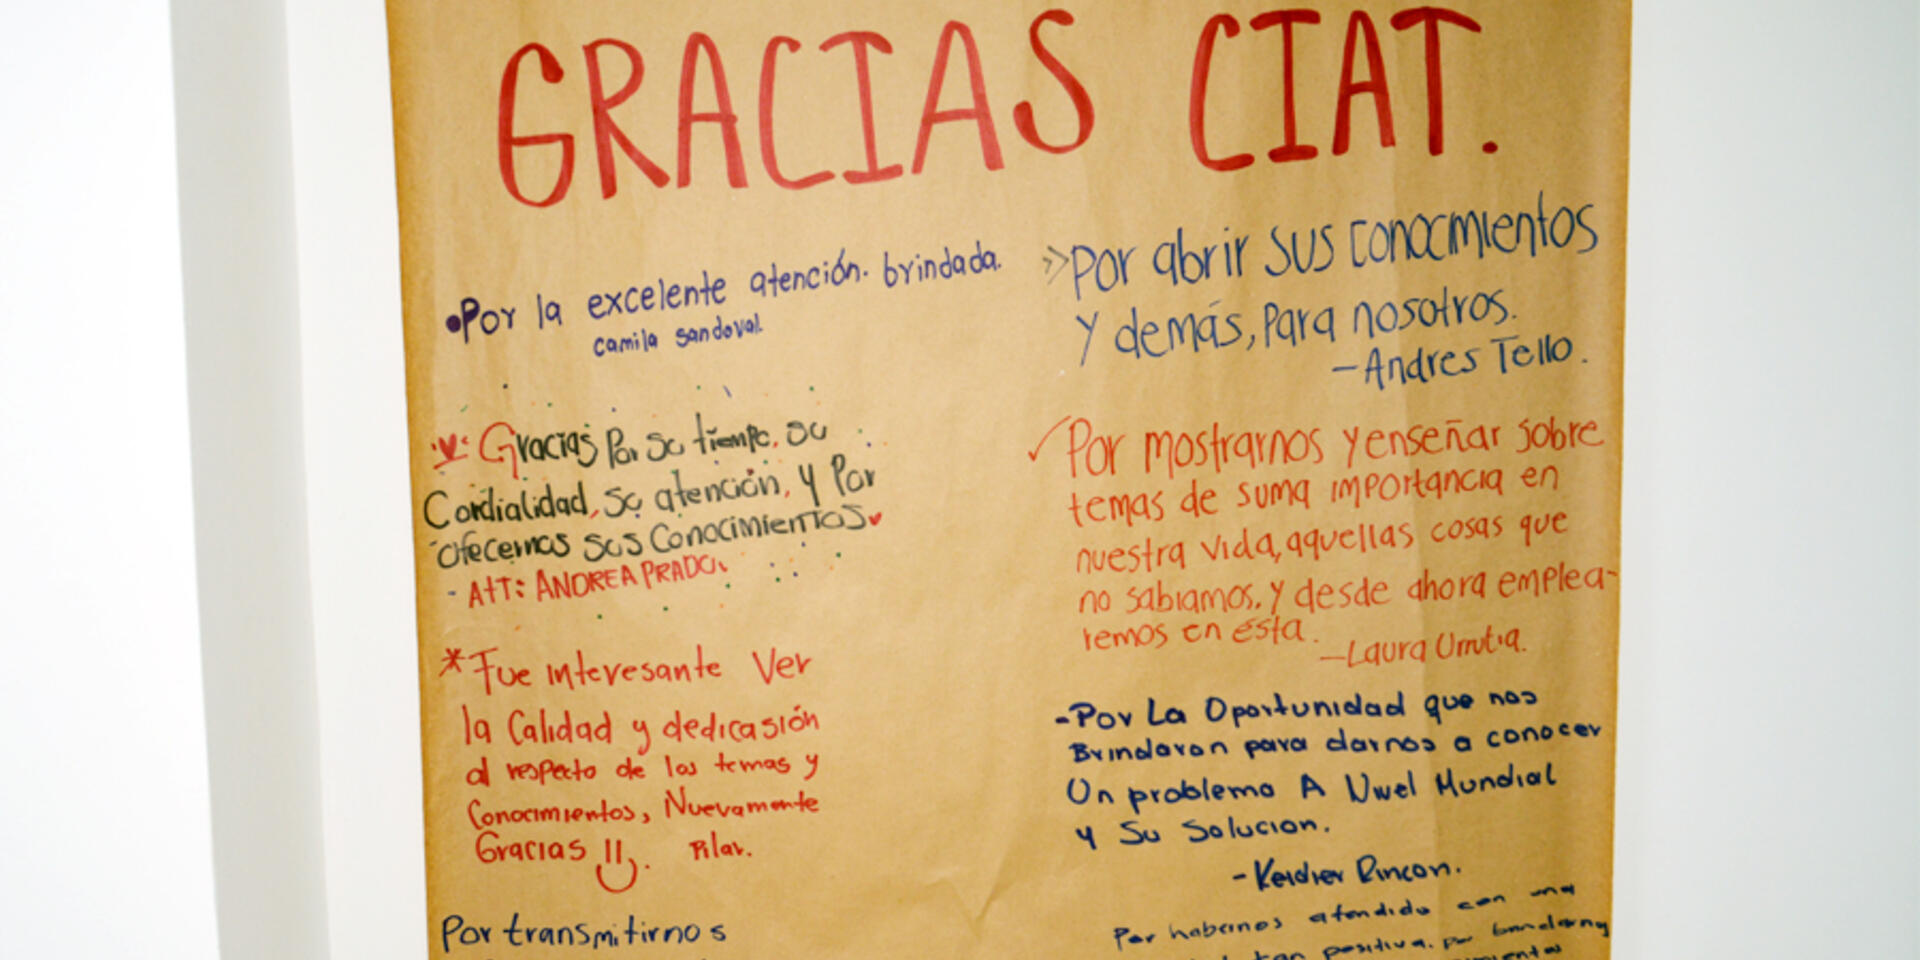 GRACIAS CIAT.
•Por la excelente atención. brindada.
camila sandoval.
Gracias Por su tiempo, su
Cordialidad, su atención, y Por
ofecernos sus Conocimientos
- Att: ANDREA PRADO.
*Fue interesante Ver
la Calidad y dedicasión
al respecto de los temas y
Conocimientos, Nuevamente
Gracias Pilar.
Por transmitirnos
>>Por abrir sus conocmientos
Y demás, Para nosotros.
-Andres Tello.
✓Por mostrarnos y enseñar sobre
temas de suma importancia en
nuestra vida, aquellas cosas que
no sabiamos. y desde ahora emplea-
remos en esta.
-Laura Urrutia.
-Por La Oportunidad que nos
Brindaron para darnos a conocer
Un problema A Nivel Mundial
y Su Solucion.
-Keidier Rincon.
Por habernos atendido con una
tan positiva. por